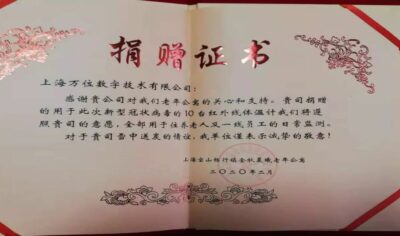 捐赠证书
上海万位数字技术有限公司:
感谢贵公司对我们老年公寓的关心和支持。贵司捐赠
的用于此次新型冠状病毒的10台红外线体温计我们将遵
照贵司的意愿,全部用于住养老人又一线员工的日常监测。
对于贵司雪中送炭的情谊,我单位谨表示诚挚的敬意!
上海宝山杨行镇金秋晨曦老年公寓
二〇二〇年二月